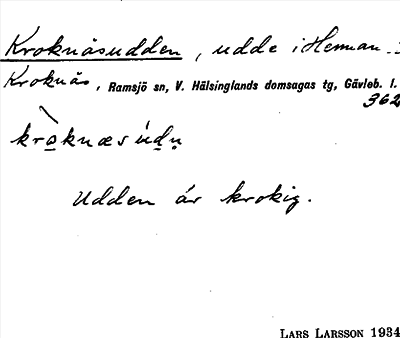 Kroknäsudden, udde i Hernan-
Kroknäs, Ramsjö sn, V. Hälsinglands domsagas tg, Gävleb. l.
362
kròknæsúdn̥
Udden är krokig.
LARS LARSSON 1934